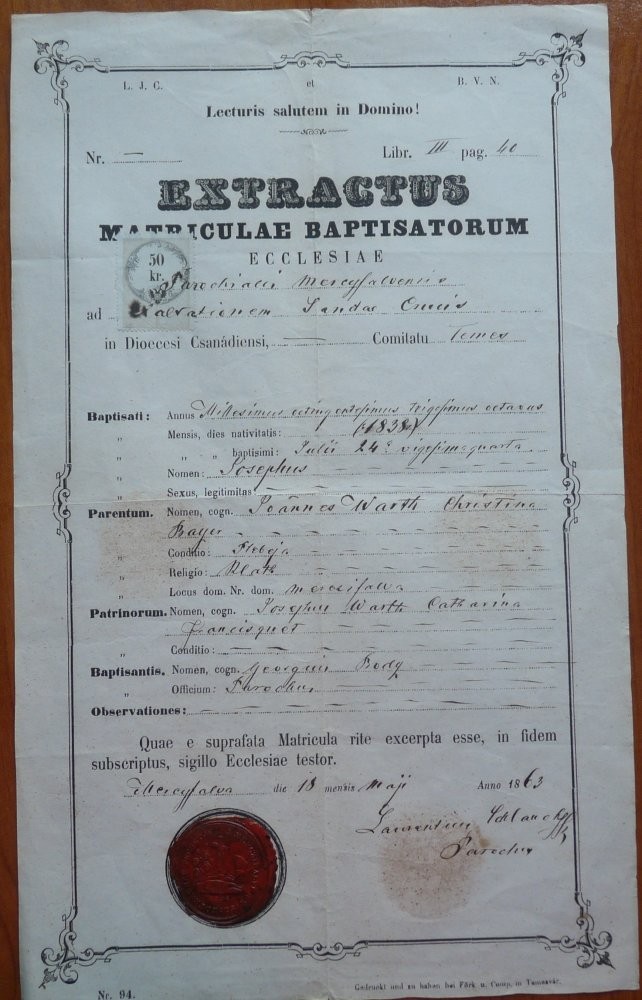 L. J. C. et B. V. N.
Lecturis salutem in Domino!
Nr. — Libr. III pag. 40
EXTRACTUS
MATRICULAE BAPTISATORUM
ECCLESIAE
50
kr.
Parochialis Mercyfalvensis
ad Sanctae Crucis
in Dioecesi Csanádiensi, — Comitatu Temes
Baptisati: Annus Millesimus octingentesimus trigesimus octavus
„ Mensis, dies nativitatis: (1838)
„ „ „ baptisimi: Julii 24a vigesimaquarta
„ Nomen: Josephus
„ Sexus, legitimitas:
Parentum. Nomen, cogn. Joannes Warth Christina
Bayer
„ Conditio:
„ Religio:
„ Locus dom. Nr. dom. Mercifalva
Patrinorum. Nomen, cogn. Josephus Warth Catharina
Francisquet
„ Conditio: —
Baptisantis. Nomen, cogn. Georgius
„ Officium: Parochus
Observationes:
Quae e suprafata Matricula rite excerpta esse, in fidem
subscriptus, sigillo Ecclesiae testor.
Mercyfalva die 18 mensis Maji Anno 1863
Laurentius
Parochus
Nr. 94.
Gedruckt und zu haben bei Förk u. Comp. in Temesvár.